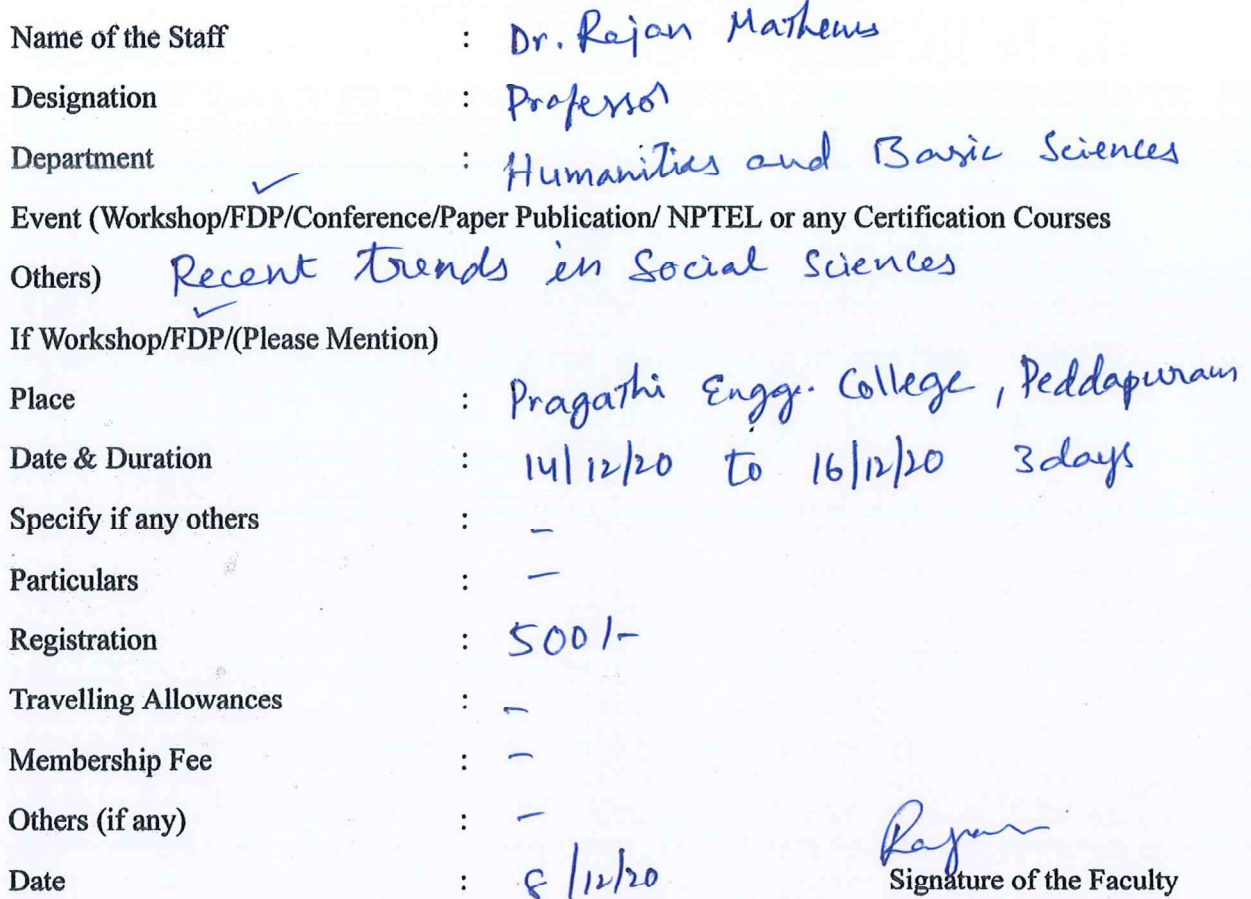 Name of the Staff : Dr. Rajan Mathews
Designation : Professor
Department : Humanities and Basic Sciences
Event (Workshop/FDP/Conference/Paper Publication/ NPTEL or any Certification Courses
Others) Recent trends in Social Sciences
If Workshop/FDP/(Please Mention)
Place : Pragathi Engg. College, Peddapuram
Date & Duration : 14/12/20 to 16/12/20 3days
Specify if any others : -
Particulars : -
Registration : 500/-
Travelling Allowances : -
Membership Fee : -
Others (if any) : -
Rajan
Date : 8/12/20 Signature of the Faculty